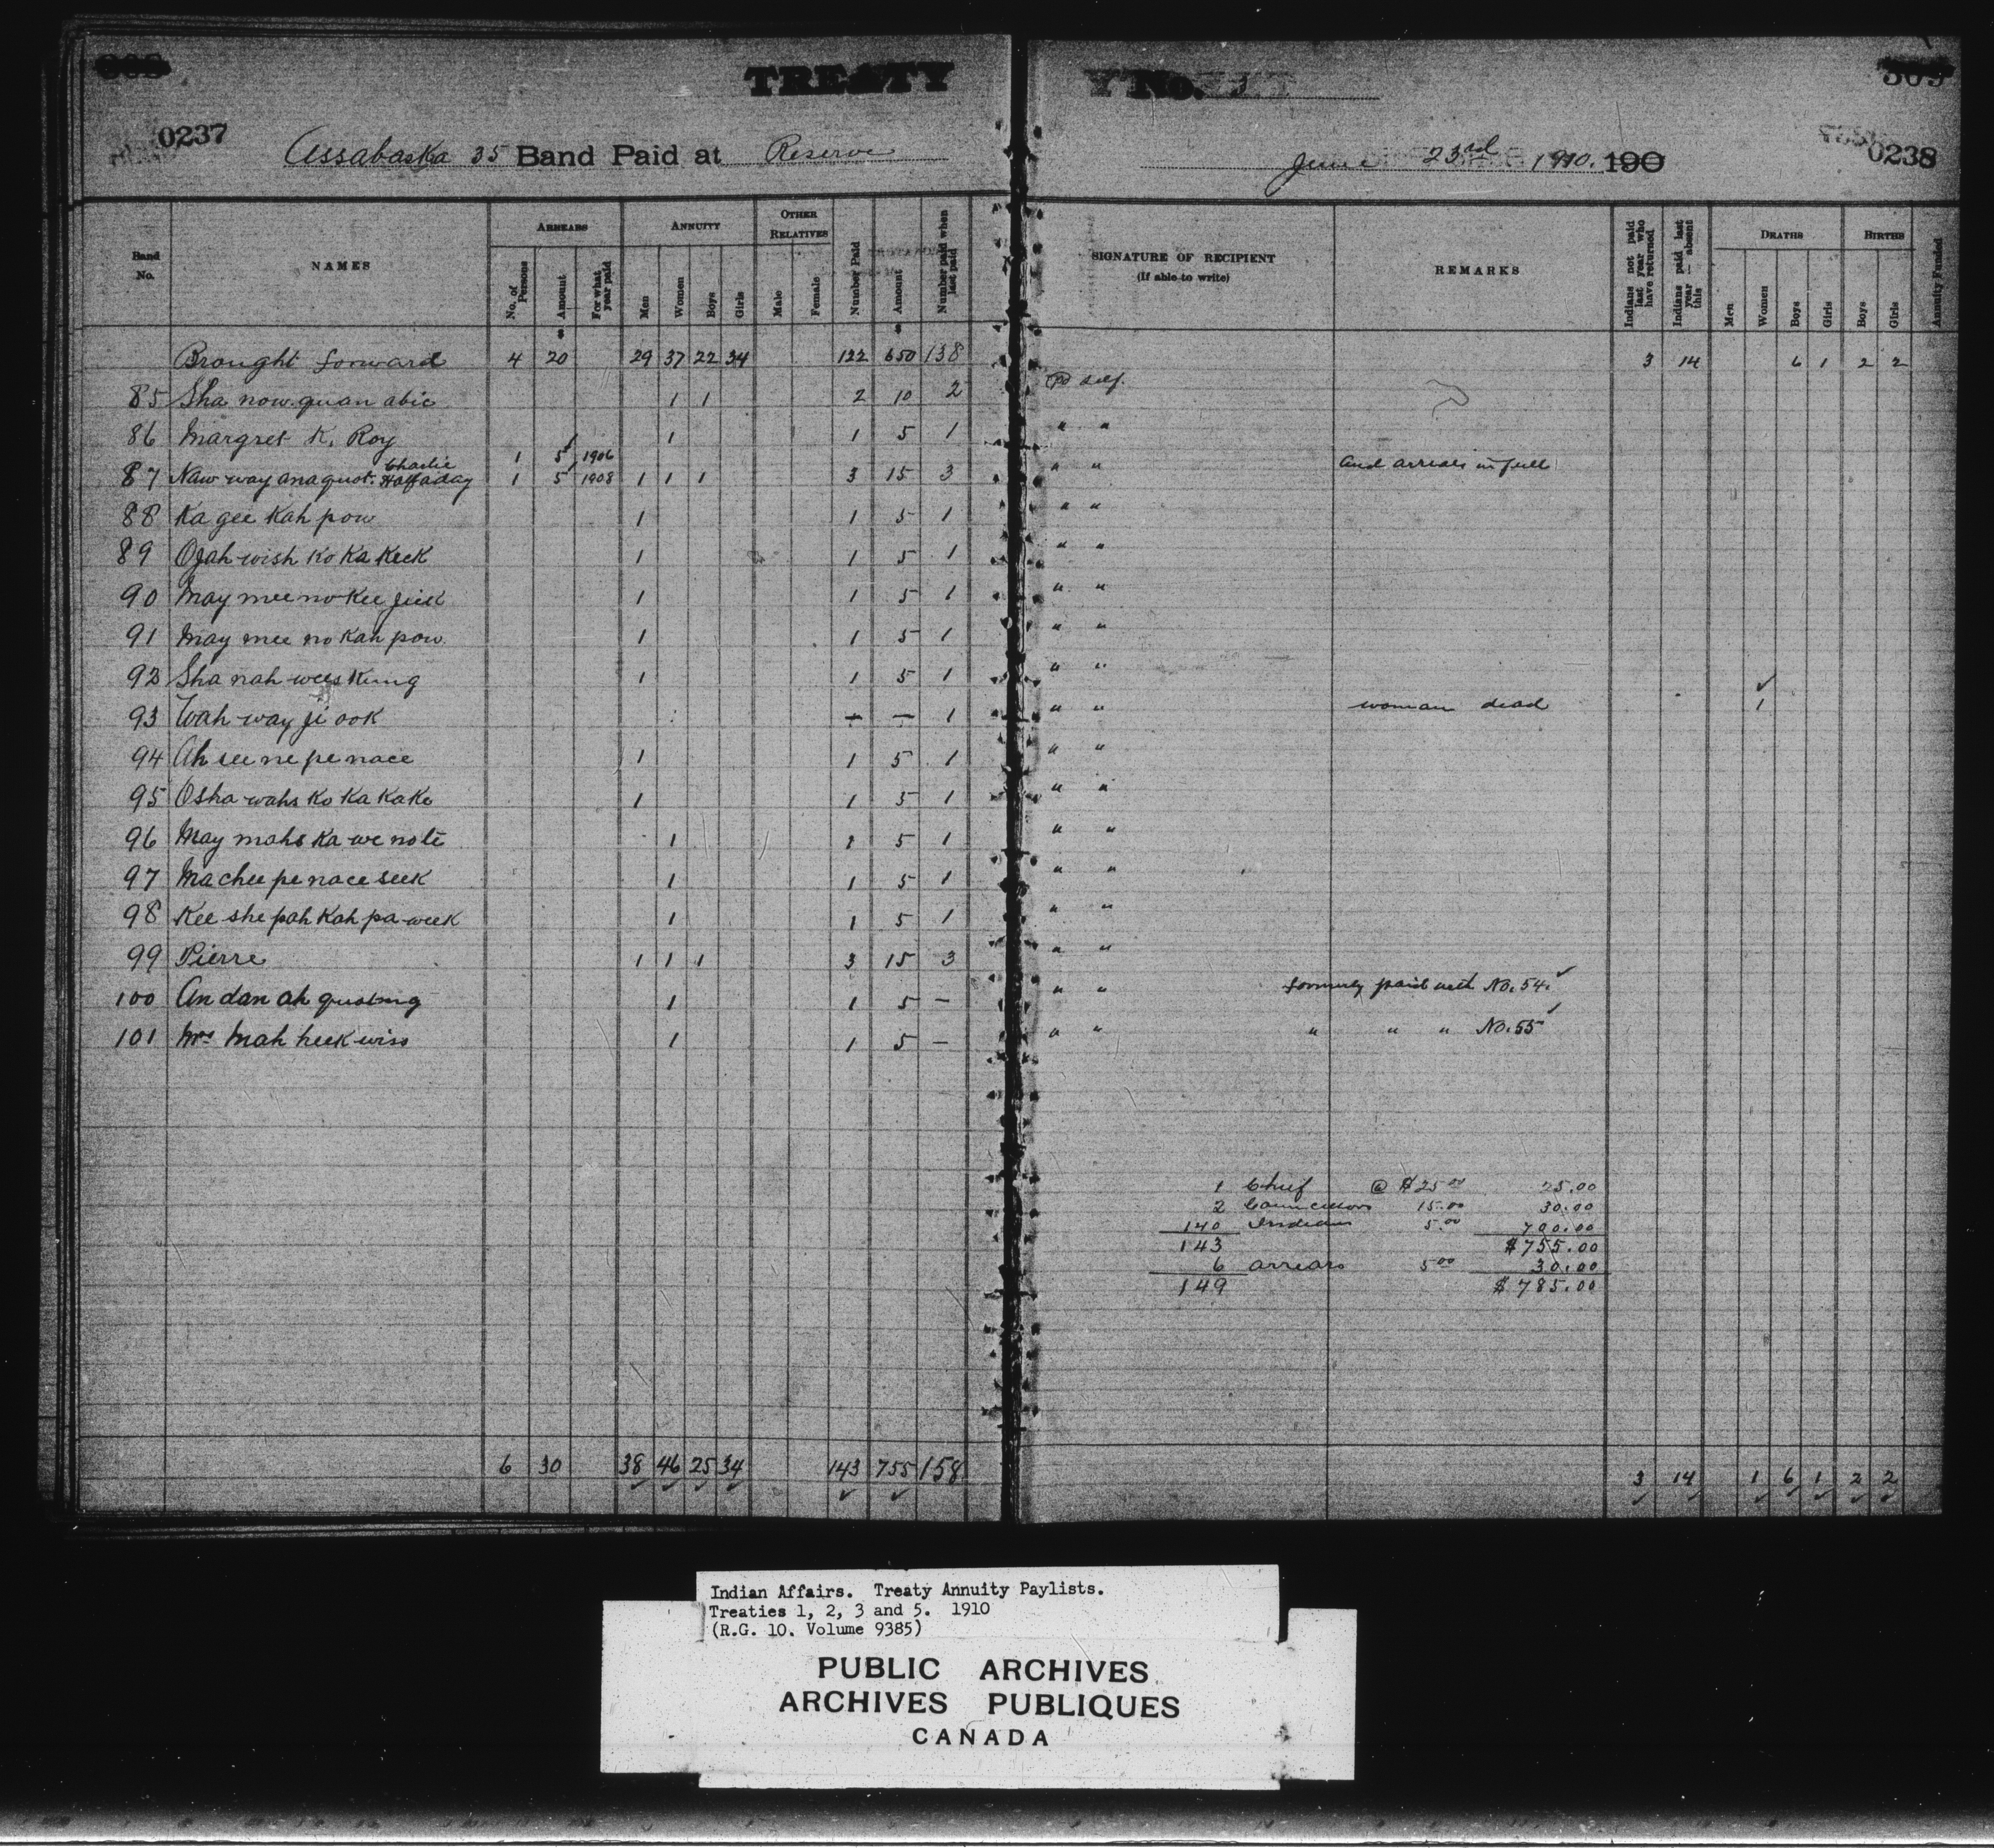 TREATY No. 3
0237
Assabaska 35 Band Paid at Reserve
June 23rd 1910. 190
309
0238
Band No.
NAMES
ARREARS
No. of Persons
Amount
For what year paid
ANNUITY
Men
Women
Boys
Girls
OTHER RELATIVES
Male
Female
Number Paid
Amount
Number paid when last paid
SIGNATURE OF RECIPIENT
(If able to write)
REMARKS
Indians not paid last year who have returned
Indians paid last year — absent this
DEATHS
Men
Women
Boys
Girls
BIRTHS
Boys
Girls
Annuity Funded
Brought forward 4 20 29 37 22 34 122 650 138 3 14 6 1 2 2
85 Sha now quan abic 1 1 2 10 2 Pd self.
86 Margret K. Roy 1 1 5 1 " "
1 5 1906
87 Naw way ana quot. Charlie Halfaday 1 5 1908 1 1 1 3 15 3 " " and arrears in full
88 Ka gee Kah pow 1 1 5 1 " "
89 Ojah wish Ko Ka Keek 1 1 5 1 " "
90 May mee no Kee jick 1 1 5 1 " "
91 May mee no Kah pow 1 1 5 1 " "
92 Sha nah wees Kung 1 1 5 1 " "
93 Wah way ji ook — — 1 " " woman dead 1
94 Ah see ne pe nace 1 1 5 1 " "
95 Osha wahs Ko Ka Kake 1 1 5 1 " "
96 May mahs Ka we note 1 1 5 1 " "
97 Ma chee pe nace seek 1 1 5 1 " "
98 Kee she pah Kah pa week 1 1 5 1 " "
99 Pierre 1 1 1 3 15 3 " "
100 An dan ah quotung 1 1 5 — " " formerly paid with No. 54.
101 Mrs Mah heek wiss 1 1 5 — " " " " " No. 55
1 Chief @ $25 00 25.00
2 Councillors 15.00 30.00
140 Indians 5.00 700.00
143 $755.00
6 arrears 5 00 30.00
149 $785.00
6 30 38 46 25 34 143 755 158 3 14 1 6 1 2 2
Indian Affairs. Treaty Annuity Paylists.
Treaties 1, 2, 3 and 5. 1910
(R.G. 10. Volume 9385)
PUBLIC ARCHIVES
ARCHIVES PUBLIQUES
CANADA